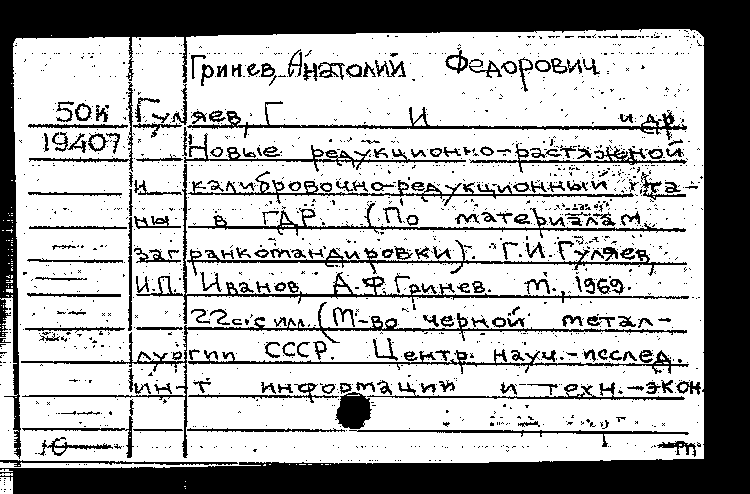 Гринев, Анатолий Федорович
50К Гуляев, Г И и др.
19407 Новые редукционно-растяжной
и калибровочно-редукционный ста-
ны в ГДР. (По материалам
загранкомандировки). Г.И. Гуляев,
И.П. Иванов, А.Ф. Гринев. М., 1969.
22 с. с илл. (М-во черной метал-
лургии СССР. Центр. науч.-исслед.
ин-т информации и техн.-экон.